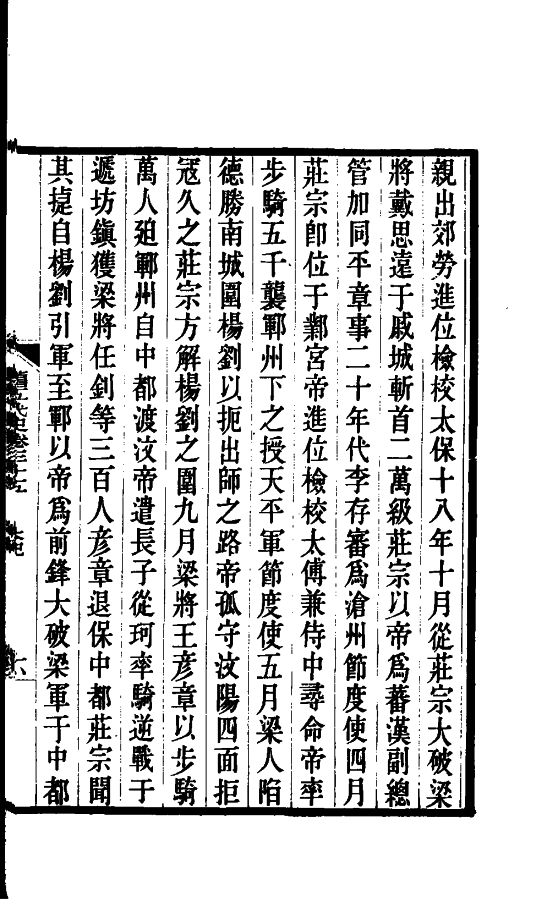 親出郊勞進位檢校太保十八年十月從莊宗大破梁
將戴思遠于戚城斬首二萬級莊宗以帝爲蕃漢副總
管加同平章事二十年代李存審爲滄州節度使四月
莊宗卽位于鄴宮帝進位檢校太傅兼侍中尋命帝率
步騎五千襲鄆州下之授天平軍節度使五月梁人陷
德勝南城圍楊劉以扼出師之路帝孤守汶陽四面拒
寇久之莊宗方解楊劉之圍九月梁將王彥章以步騎
萬人迫鄆州自中都渡汶帝遣長子從珂率騎逆戰于
遞坊鎮獲梁將任釗等三百人彥章退保中都莊宗聞
其捷自楊劉引軍至鄆以帝爲前鋒大破梁軍于中都
舊五代史卷三十五
六